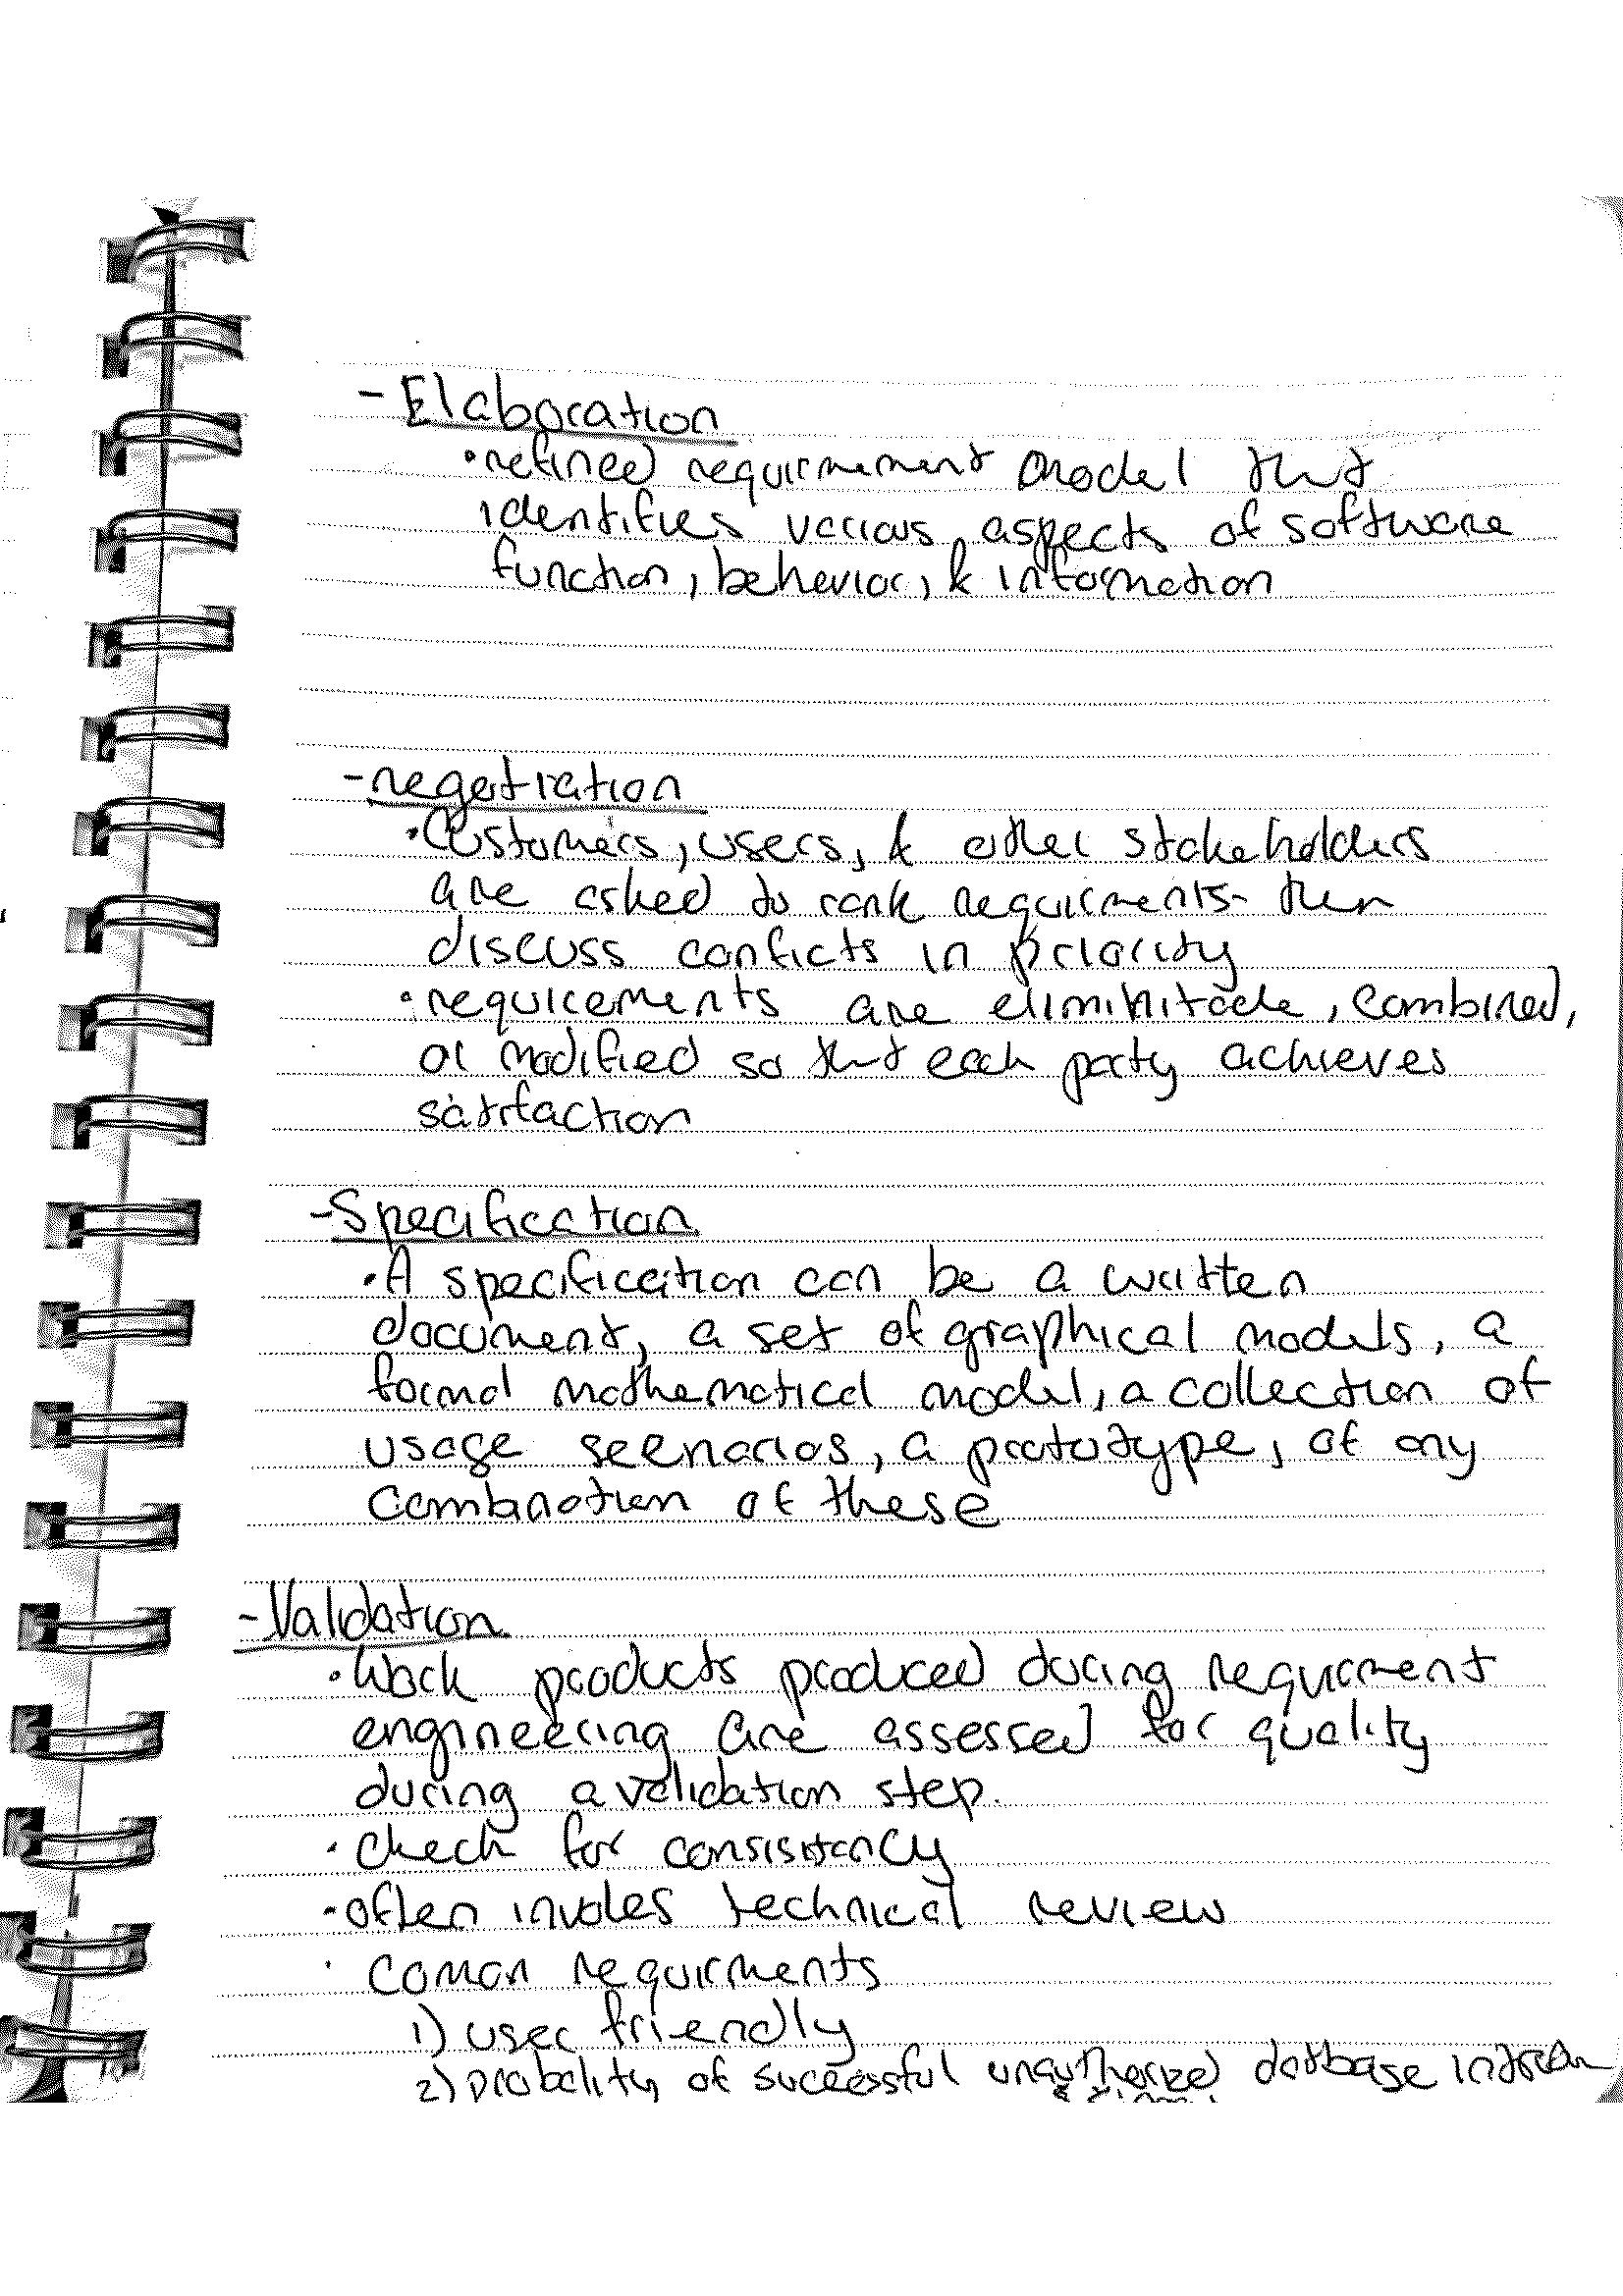 - Elaboration
• refined requirmement model that
identifies various aspects of software
function, behavior, & information
- negotiation
• Customers, users, & other stakeholders
are asked to rank requirments then
discuss conficts in priority
• requirements are eliminitade, combined,
or modified so that each party achieves
satisfaction
- Specification
• A specification can be a written
document, a set of graphical models, a
formal mathematical model, a collection of
usage seenarios, a prototype, of any
combination of these
- Validation
• Work products produced during requirment
engineering are assessed for quality
during a validation step.
• check for consistancy
• often involes technical review
• comon requirments
1) user friendly
2) probality of successful unauthorized database intrusion